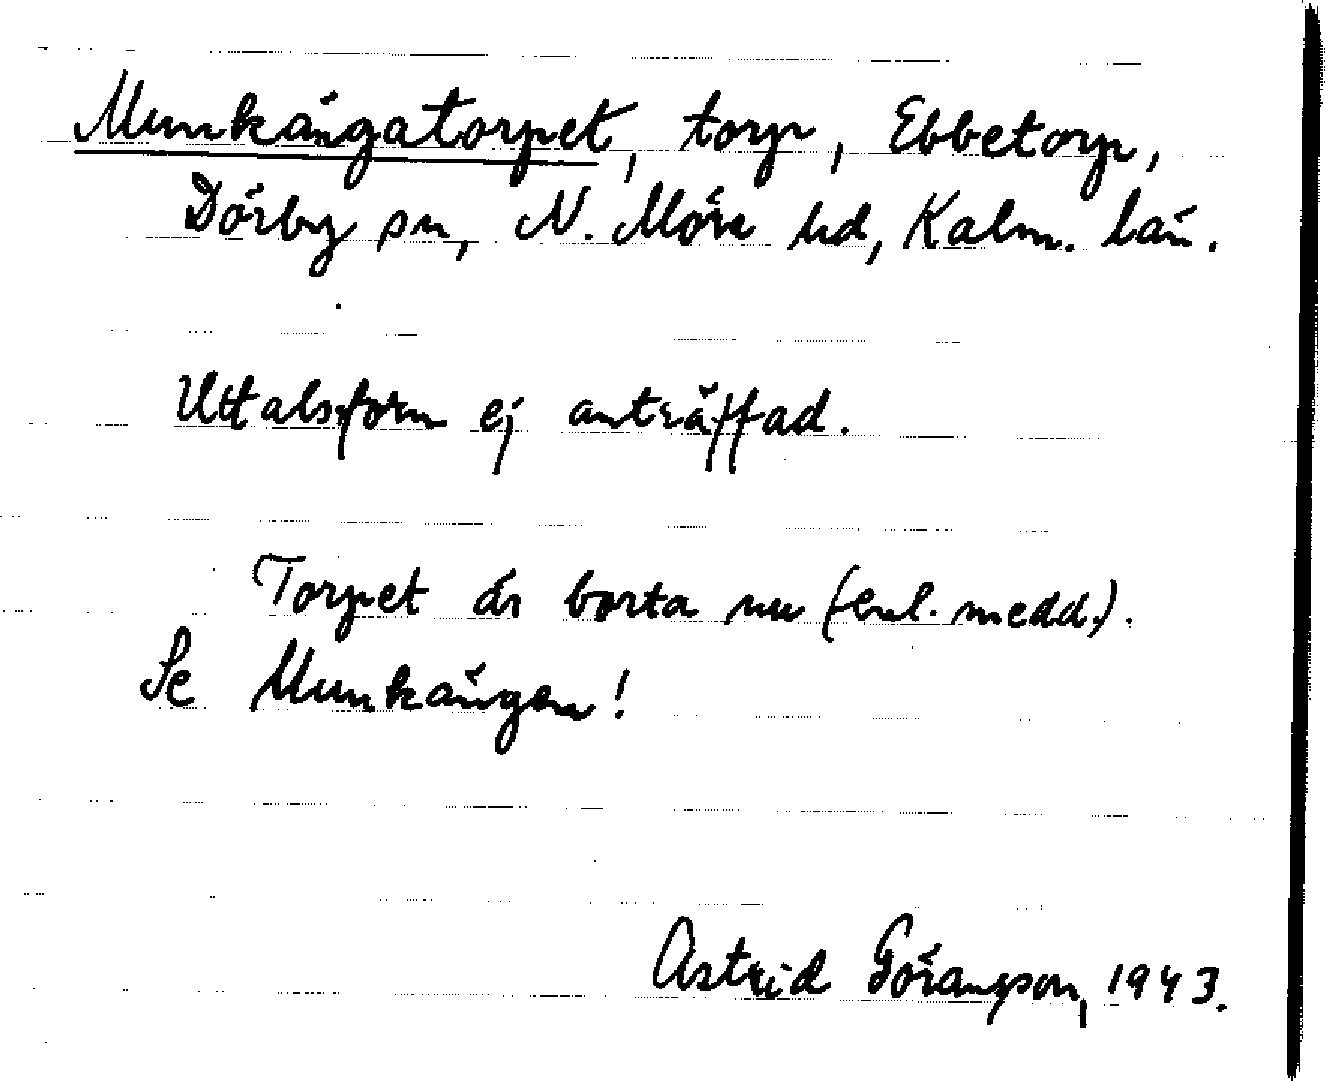 Munkängatorpet, torp, Ebbetorp,
Dörby sn, N. Möre hd, Kalm. län.
Uttalsform ej anträffad.
Torpet är borta nu (enl. medd.).
Se Munkängen!
Astrid Göransson, 1943.